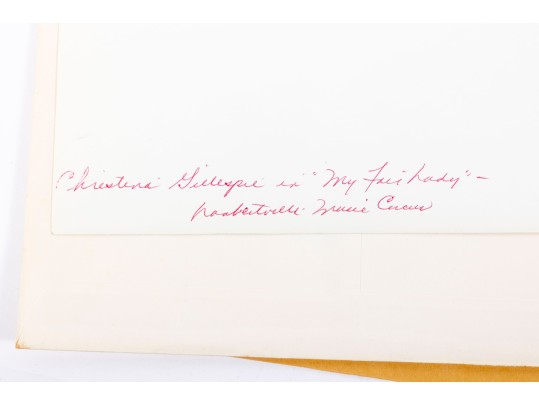 Christena Gillespie in "My Fair Lady" –
Lambertville Music Circus